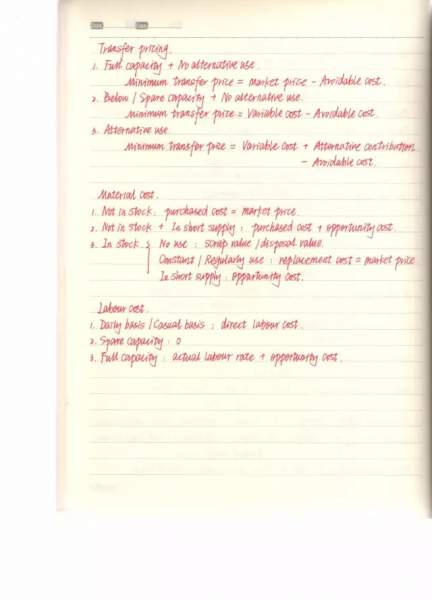 Transfer pricing.
1. Full capacity + No alternative use.
Minimum transfer price = market price - Avoidable cost.
2. Below / Spare capacity + No alternative use.
Minimum transfer price = Variable cost - Avoidable cost.
3. Alternative use.
Minimum transfer price = Variable cost + Alternative contribution
- Avoidable cost.
Material cost.
1. Not in stock : purchased cost = market price.
2. Not in stock + In short supply : purchased cost + opportunity cost.
3. In stock { No use : scrap value / disposal value.
Constant / Regularly use : replacement cost = market price
In short supply : opportunity cost.
Labour cost.
1. Daily basis / Casual basis : direct labour cost.
2. Spare capacity : 0
3. Full capacity : actual labour rate + opportunity cost.